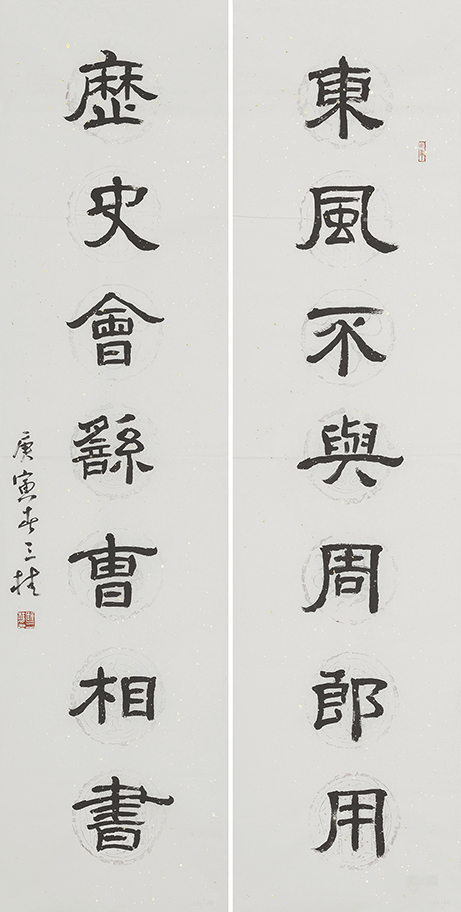 東風不與周郎用
歷史會繇曹相書
庚寅春三